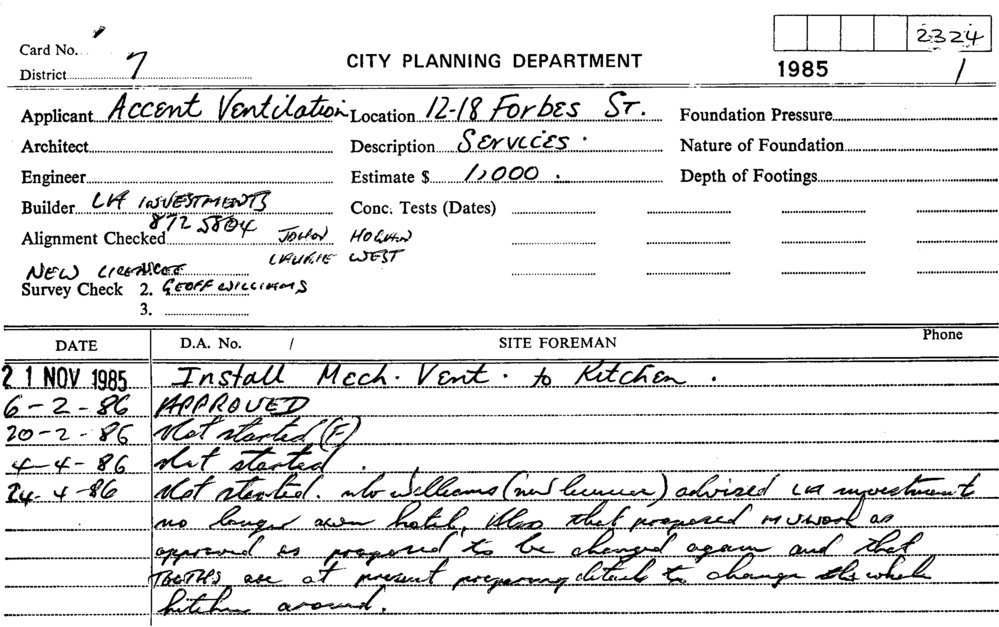 2324
Card No.
District 7
CITY PLANNING DEPARTMENT
1985 /1
Applicant Accent Ventilation Location 12-18 Forbes St. Foundation Pressure
Architect Description Services. Nature of Foundation
Engineer Estimate $ 1,000. Depth of Footings
Builder LH INVESTMENTS Conc. Tests (Dates)
872 5804
Alignment Checked JOHN HOGAN
LAURIE WEST
NEW LICENCEE
Survey Check 2. GEOFF WILLIAMS
3.
DATE D.A. No. / SITE FOREMAN Phone
21 NOV 1985 Install Mech. Vent. to Kitchen.
6-2-86 APPROVED
20-2-86 Not started (F)
4-4-86 Not started.
24-4-86 Not started. Williams (new licencee) advised LH investment
no longer own hotel. Also that proposed as
approved is proposed to be changed again and that
TOOTHS are at present preparing details to change the whole
kitchen around.